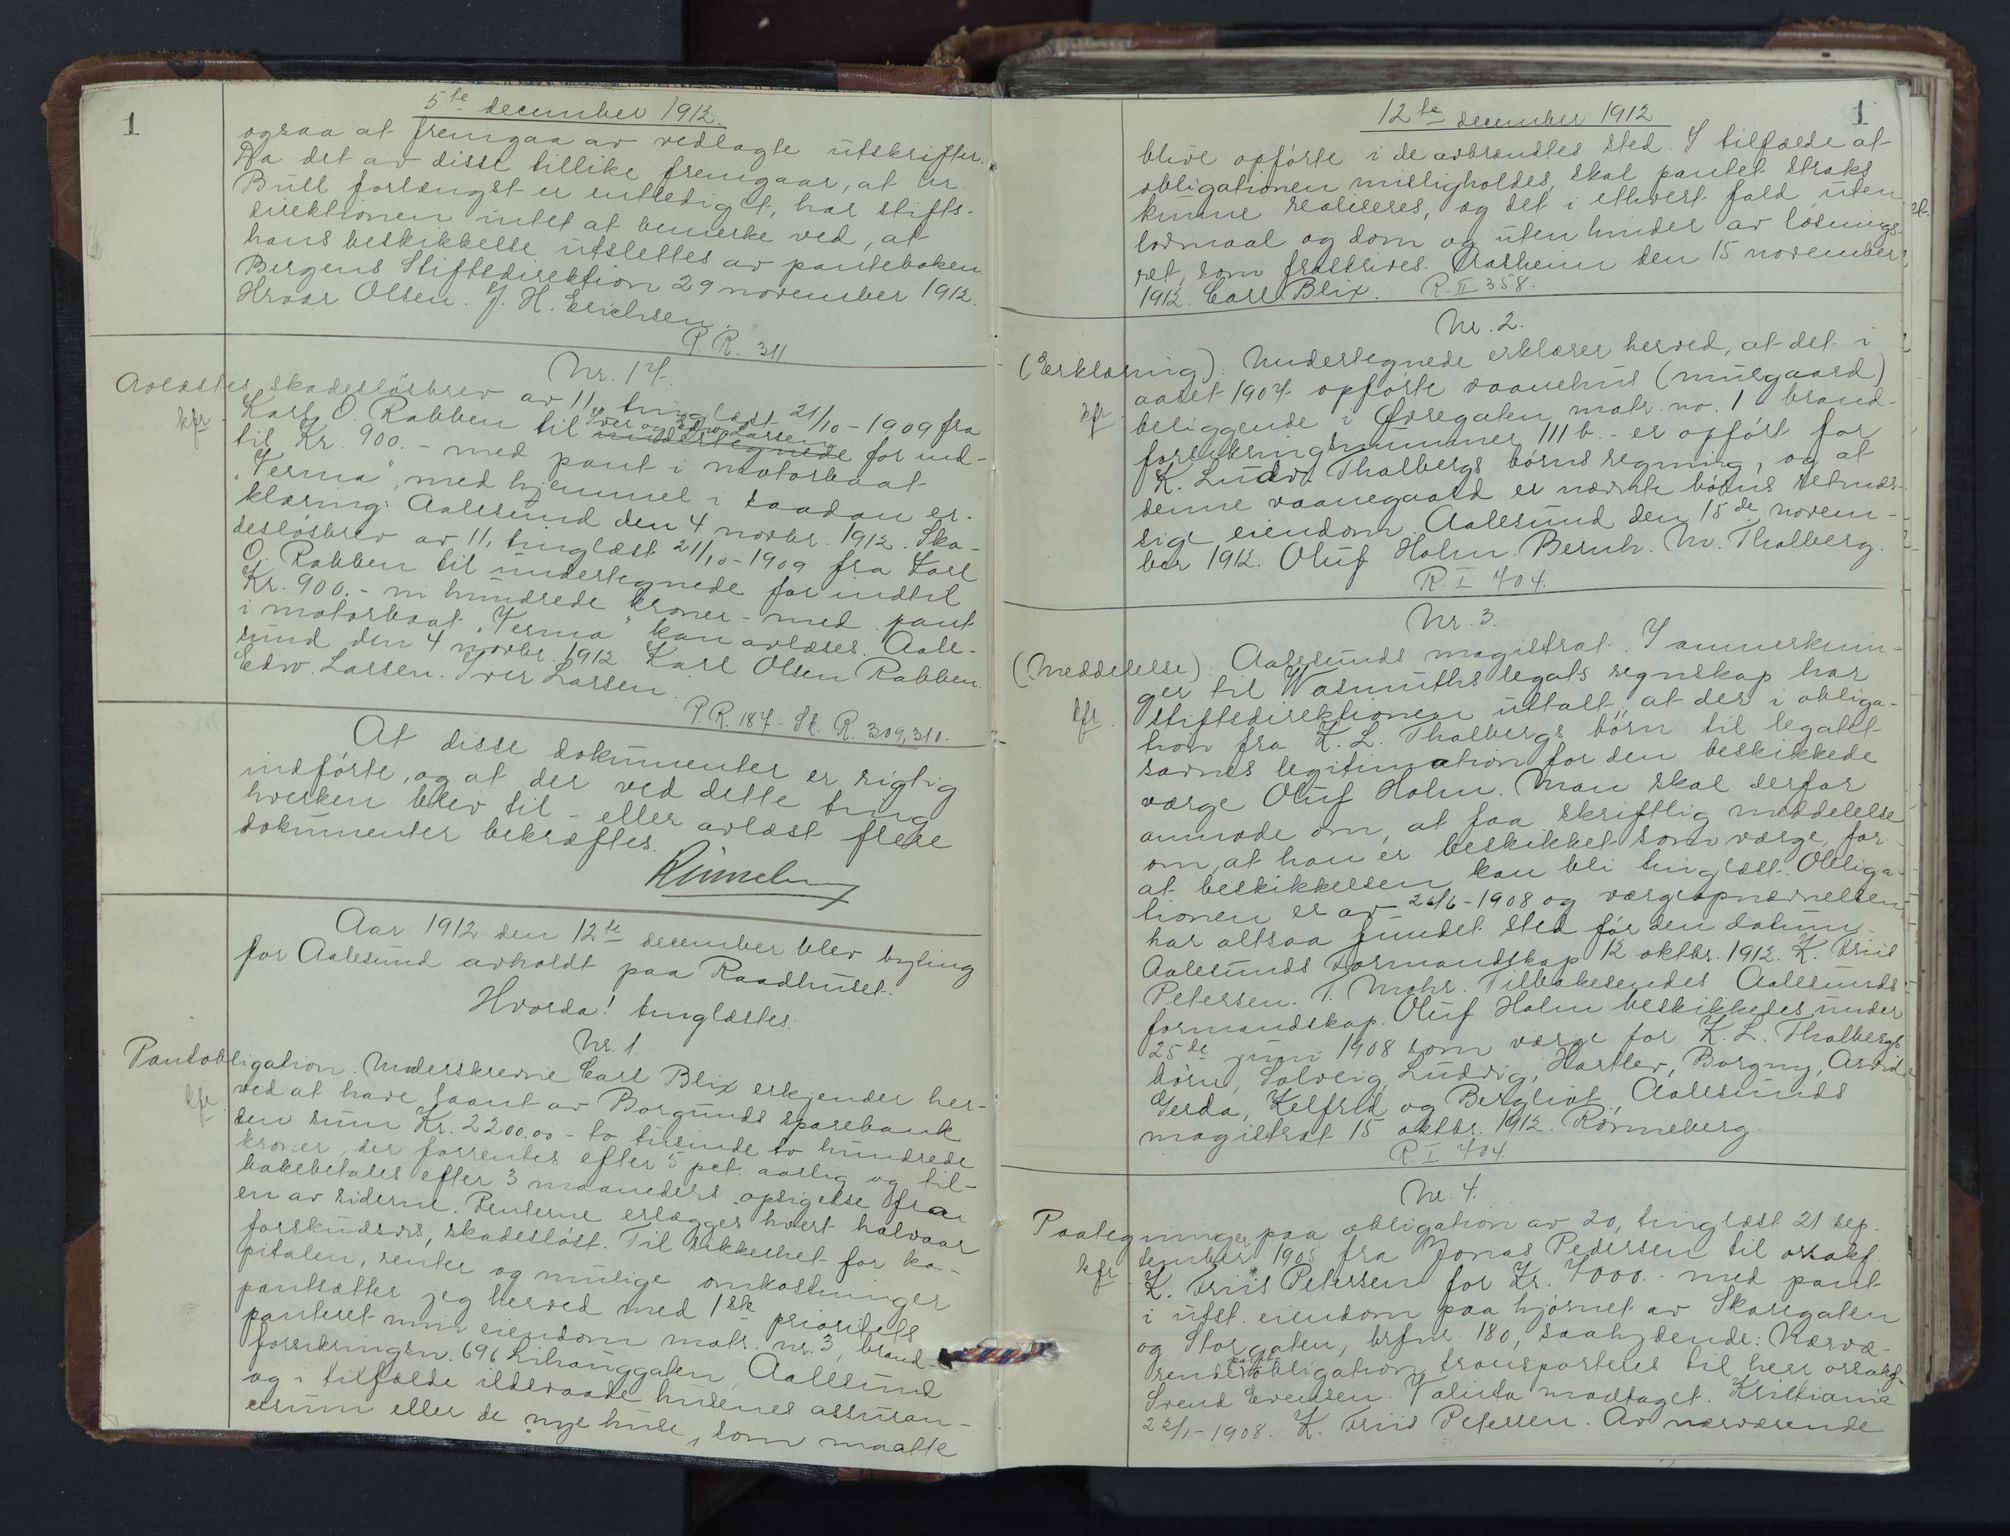 1
5te december 1912.
ogsaa at fremgaa av vedlagte utskrifter.
Da det av disse tillike fremgaar, at hr.
Bull forlængst er entlediget, har stifts-
direktionen intet at bemerke ved, at
hans beskikkelse utslettes av panteboken.
Bergens Stiftsdirektion 29 november 1912.
Hroar Olsen. J. H. Erichsen.
P. R. 311
Nr. 17.
Avlæstes skadesløsbrev av 11, tinglæst 21/10-1909 fra
kfr. Karl O. Rabben til Iver og Edw. Larsen undertegnede for ind-
til Kr. 900.- med pant i motorbaat
"Verma", med hjemmel i saadan er-
klæring: Aalesund den 4 novbr. 1912. Ska-
desløsbrev av 11, tinglæst 21/10-1909 fra Karl
O. Rabben til undertegnede for indtil
Kr. 900.- ni hundrede kroner - med pant
i motorbaat "Verma" kan avlæses. Aale-
sund den 4 novbr. 1912. Karl Olsen Rabben.
Edw. Larsen. Iver Larsen.
P. R. 187 - Sk. R. 309,310.
At disse dokumenter er rigtig
indførte, og at der ved dette ting
hverken blev til- eller avlæst flere
dokumenter bekræftes.
Aar 1912 den 12te december blev byting
for Aalesund avholdt paa Raadhuset.
Hvorda! tinglæstes:
Nr. 1.
Pantobligation. Underskrevne Carl Blix erkjender her-
kfr. ved at have laant av Borgunds sparebank
den sum Kr. 2200.00 - to tusinde to hundrede
kroner, der forrentes efter 5 pct. aarlig og til-
bakebetales efter 3 maaneders opsigelse fra
en av siderne. Renterne erlægges hvert halvaar
forskudsvis, skadesløst. Til sikkerhet for ka-
pitalen, renter og mulige omkostninger
pantsætter jeg herved med 1ste prioritets
panteret min eiendom matr. nr. 3, brand-
forsikringsn. 696 Lihauggaten, Aalesund
og i tilfælde ildsvaade husenes assuran-
cesum eller de nye huse, som maatte
12te december 1912.
1
blive opførte i de avbrændtes sted. I tilfælde at
obligationen misligholdes, skal pantet straks
kunne realiseres, og det i ethvert fald uten
lovmaal og dom og uten hinder av løsnings-
ret, som frasskrives. Aarheim den 15 november
1912. Carl Blix. R. II 358.
Nr. 2.
(Erklæring). Undertegnede erklærer herved, at det i
aaret 1907 opførte vaanehus (murgaard)
kfr. beliggende i Øvregaten matr. no. 1 brand-
forsikringsnummer 111 b. - er opført for
K. Ludv. Thalbergs børns regning, og at
denne vaanegaard er nævnte børns retmæs-
sige eiendom. Aalesund den 15de novem-
ber 1912. Oluf Holm. Bernh. M. Thalberg.
R. I 404.
Nr. 3.
(Meddelelse). Aalesunds magistrat. I anmerknin-
ger til Wasmuths legats regnskap har
kfr. stiftsdirektionen uttalt, at der i obliga-
tion fra K. L. Thalbergs børn til legatet
savnes legitimation for den beskikkede
værge Oluf Holm. Man skal derfor
anmode om, at faa skriftlig meddelelse
om, at han er beskikket som værge, for-
at beskikkelsen kan bli tinglæst. Obliga-
tionen er av 26/6-1908 og værgeopnævnelsen
har altsaa fundet sted før den datum.
Aalesunds Formandskap 12 oktbr. 1912. K. Friis
Petersen. T. Mohr. Tilbakesendes Aalesunds
formandskap. Oluf Holm beskikkedes under
25de juni 1908 som værge for K. L. Thalbergs
børn, Solveig, Ludvig, Hartlev, Borgny, Arvid
Gerda, Kelfrid og Bergliot. Aalesunds
magistrat 15 oktbr. 1912. Rønneberg.
R. I 404.
Nr. 4.
Paategninger paa obligation av 20, tinglæst 21 sep-
tember 1905 fra Jonas Pedersen til orsakf.
kfr. K. Friis Petersen for Kr. 7000.- med pant
i utst. eiendom paa hjørnet av Skaregaten
og Storgaten, brfnr. 180, saalydende: Nærvæ-
rende pantobligation transporteres til herr orsakf.
Svend Evensen. Valuta modtaget. Kristiania
22/1-1908. K. Friis Petersen. Av nærværende